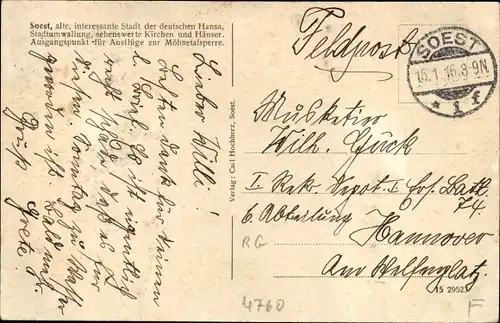 Soest, alte, interessante Stadt der deutschen Hansa,
Stadtumwallung, sehenswerte Kirchen und Häuser.
Ausgangspunkt für Ausflüge zur Möhnetalsperre.
Lieber Willi!
Besten Dank für Deinen
Brief. Es ist eigentlich
recht schade daß es für
diesen Sonntag zu
geworden ist. Bald mehr.
Gruß Grete.
Verlag: Carl Hochherz, Soest.
Feldpost
SOEST
15.1.16.8-9N
* 1 f
Musketier
Wilh. Gück
I. Rekr. Depot I. Ers. Batl.
74.
6. Abteilung
Hannover
Am Welfenplatz.
RG
15 2952
4760
F